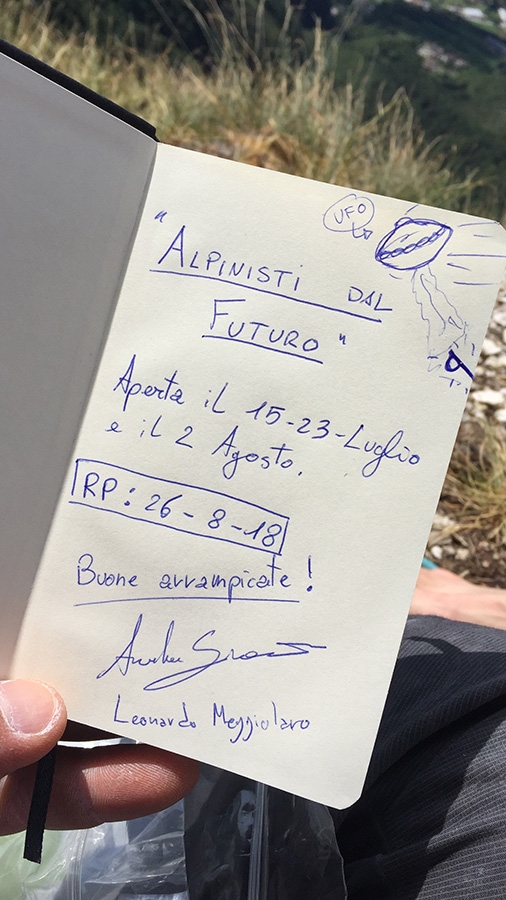 UFO
"ALPINISTI DAL
FUTURO"
Aperta il 15-23-Luglio
e il 2 Agosto.
RP: 26-8-18
Buone arrampicate!
Leonardo Meggiolaro